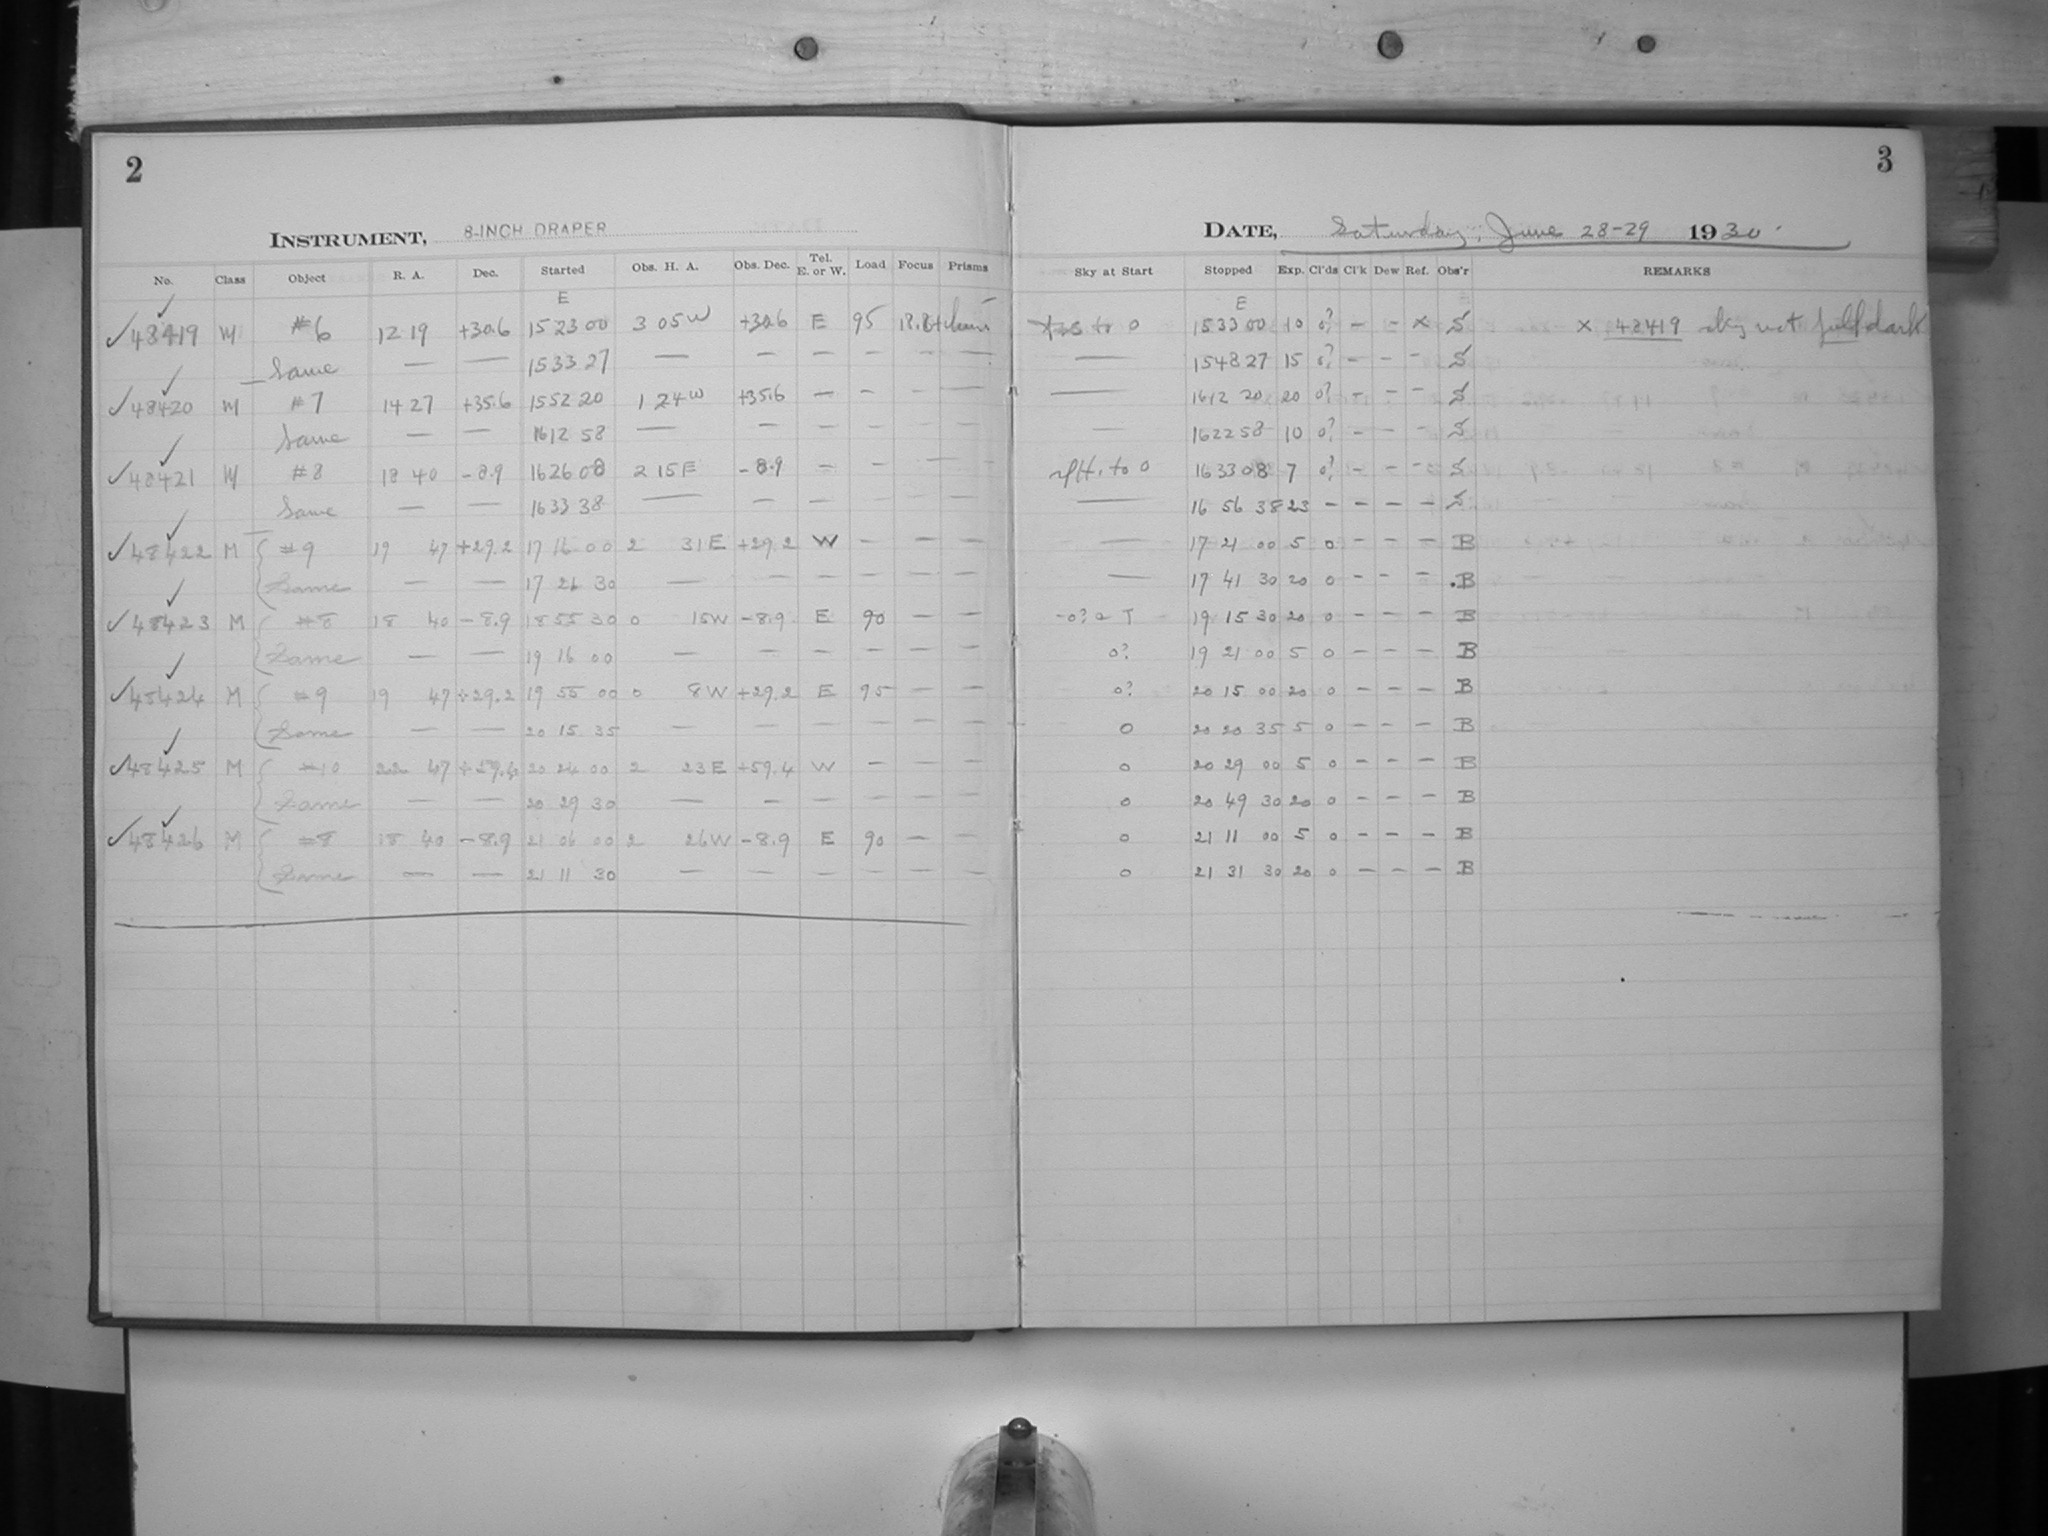 2
INSTRUMENT, 8-INCH DRAPER
No. Class Object R. A. Dec. Started Obs. H. A. Obs. Dec. Tel. E. or W. Load Focus Prisms
E
48419 M #6 12 19 +30.6 15 23 00 3 05 W +30.6 E 95
Same — — 15 33 27 — — — — — —
48420 M #7 14 27 +35.6 15 52 20 1 24 W +35.6 — — — —
Same — — 16 12 58 — — — — — —
48421 M #8 18 40 -8.9 16 26 08 2 15 E -8.9 — — — —
Same — — 16 33 38 — — — — — —
48422 M #9 19 47 +29.2 17 16 00 2 31 E +29.2 W — — —
Same — — 17 21 30 — — — — — —
48423 M #8 18 40 -8.9 18 55 30 0 15 W -8.9 E 90 — —
Same — — 19 16 00 — — — — — —
48424 M #9 19 47 +29.2 19 55 00 0 8 W +29.2 E 95 — —
Same — — 20 15 35 — — — — — —
48425 M #10 22 47 +59.4 20 24 00 2 23 E +59.4 W — — —
Same — — 20 29 30 — — — — — —
48426 M #8 18 40 -8.9 21 06 00 2 26 W -8.9 E 90 — —
Same — — 21 11 30 — — — — — —
3
DATE, Saturday, June 28-29 1930.
Sky at Start Stopped Exp. Cl'ds Cl'k Dew Ref. Obs'r REMARKS
E
to 0 15 33 00 10 0? — — x S x 48419 sky not full dark
— 15 48 27 15 0? — — — S
— 16 12 20 20 0? — — — S
— 16 22 58 10 0? — — — S
to 0 16 33 08 7 0? — — — S
— 16 56 38 23 — — — — S
— 17 21 00 5 0 — — — B
— 17 41 30 20 0 — — — B
19 15 30 20 0 — — — B
0? 19 21 00 5 0 — — — B
0? 20 15 00 20 0 — — — B
0 20 20 35 5 0 — — — B
0 20 29 00 5 0 — — — B
0 20 49 30 20 0 — — — B
0 21 11 00 5 0 — — — B
0 21 31 30 20 0 — — — B